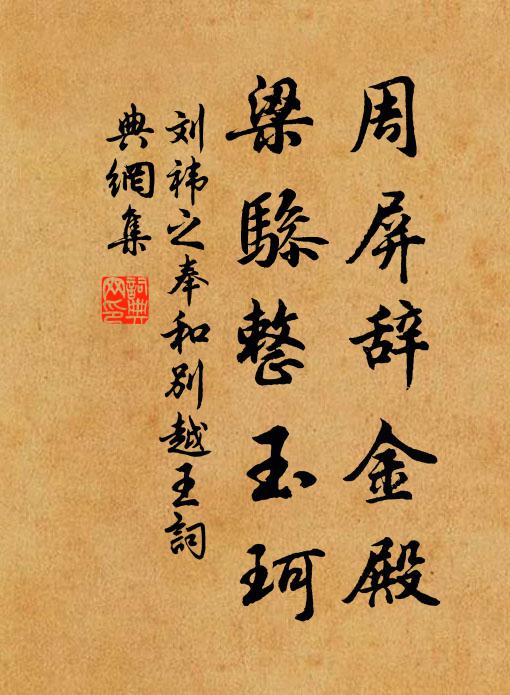 周屏辞金殿
梁骖整玉珂
刘祎之奉和别越王詞
典網集
詞典
网印